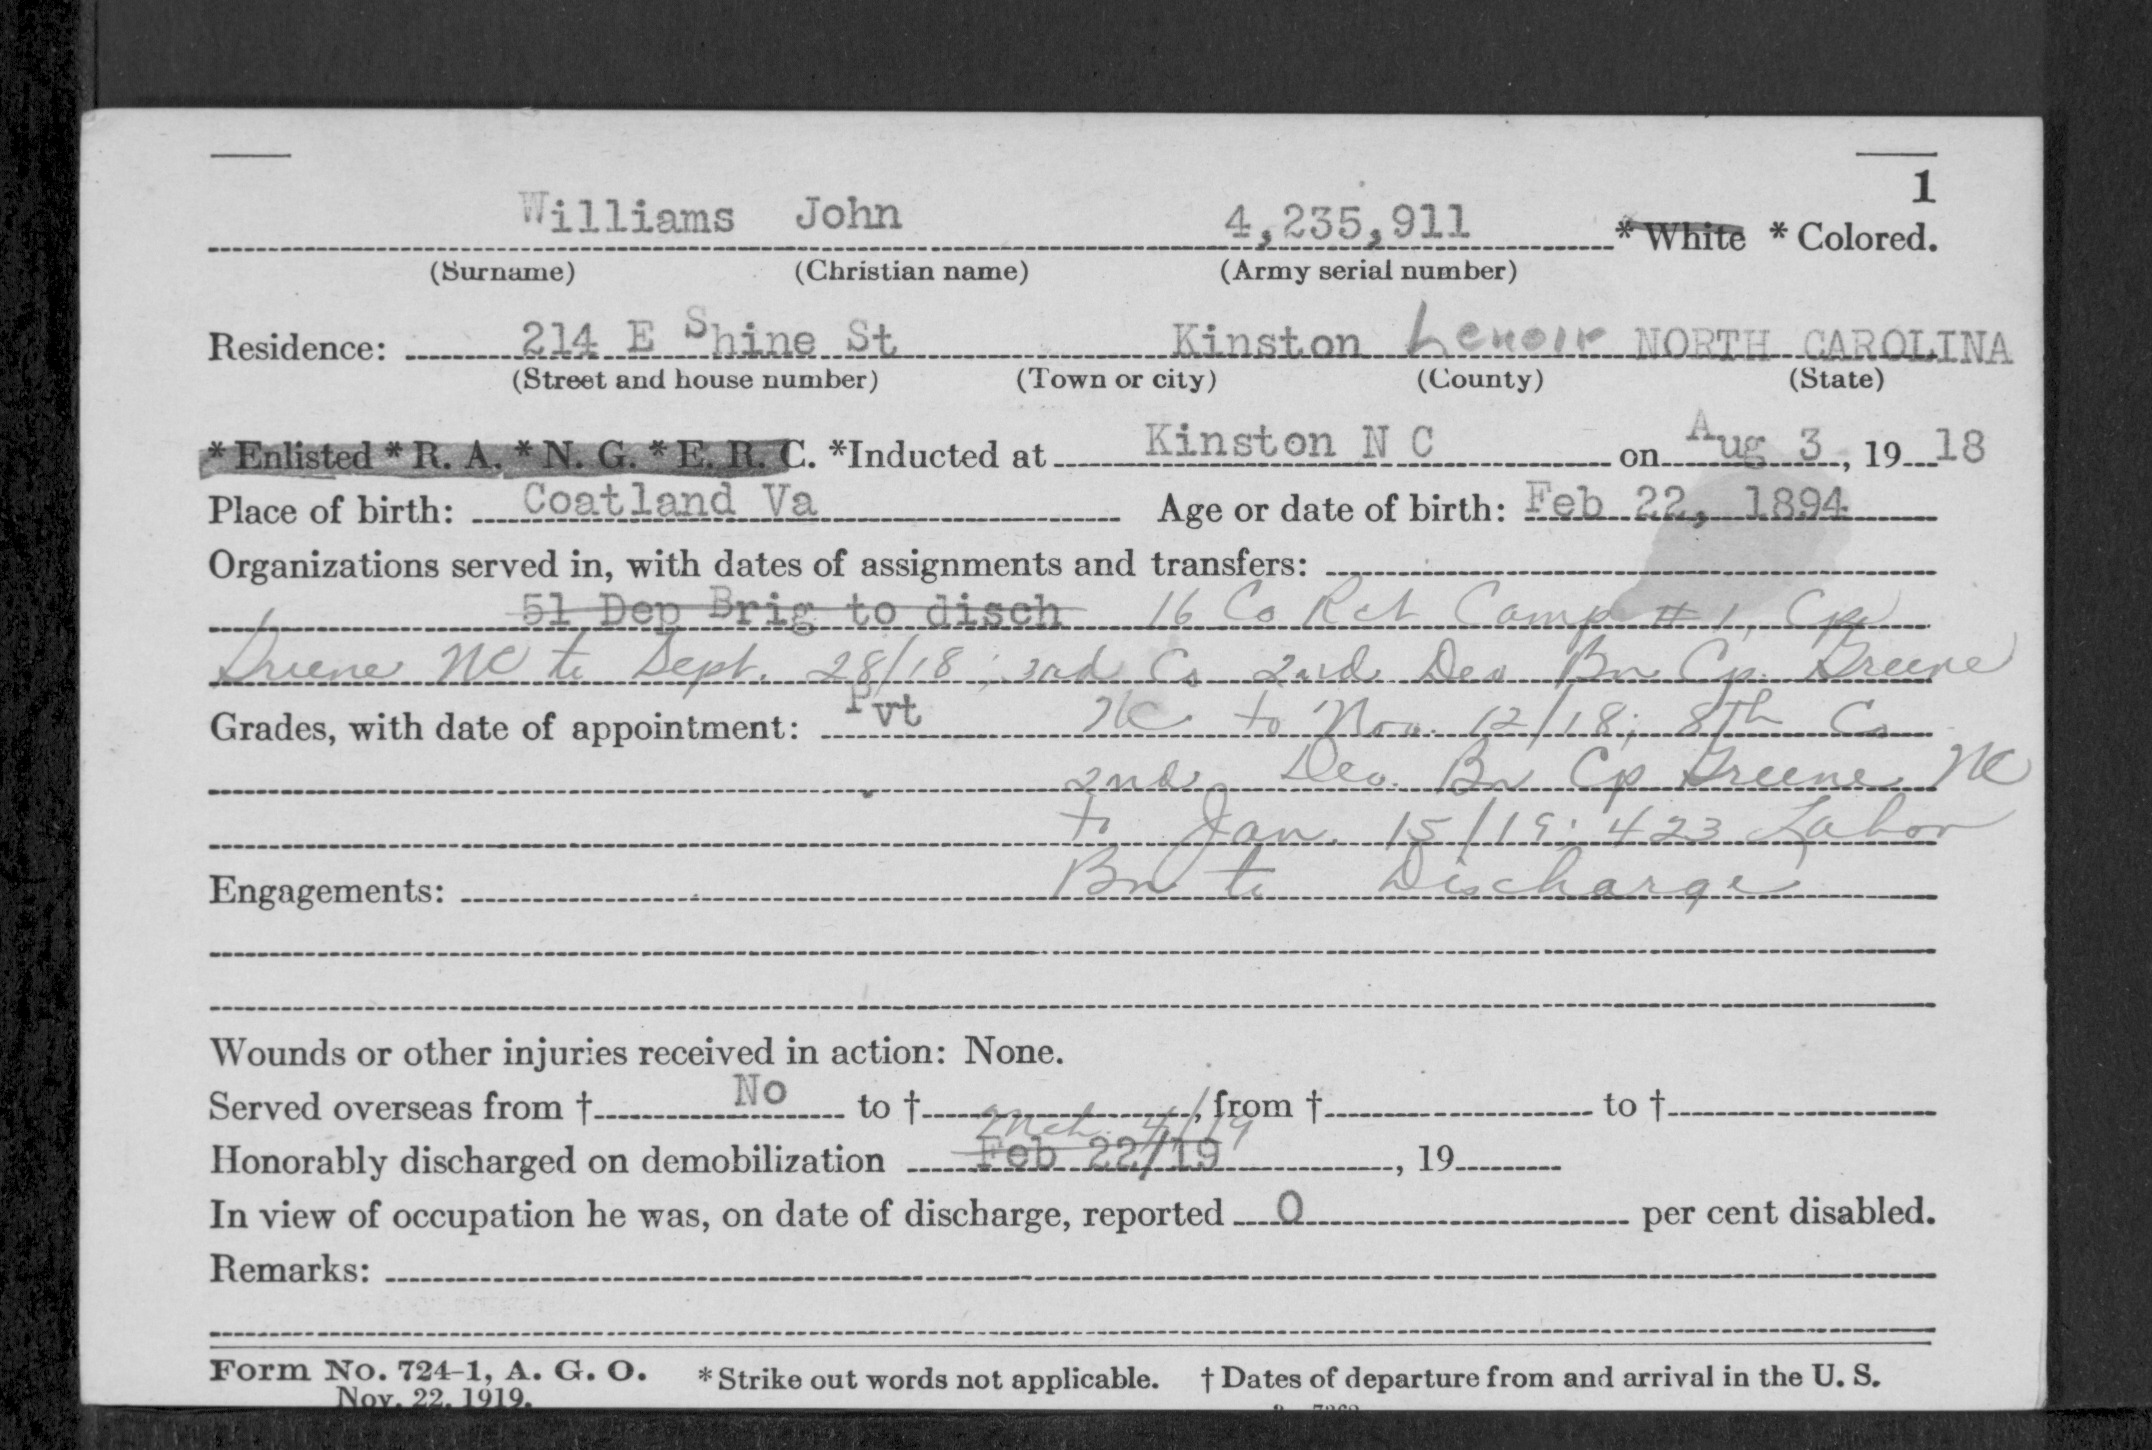 1
Williams John 4,235,911 * White * Colored.
(Surname) (Christian name) (Army serial number)
Residence: 214 E Shine St Kinston Lenoir NORTH CAROLINA
(Street and house number) (Town or city) (County) (State)
* Enlisted * R. A. * N. G. * E. R. C. *Inducted at Kinston N C on Aug 3, 19 18
Place of birth: Coatland Va Age or date of birth: Feb 22, 1894
Organizations served in, with dates of assignments and transfers:
51 Dep Brig to disch 16 Co Rct Camp # 1, Cp
Greene NC to Sept. 28/18; 3rd Co 2nd Dev Bn Cp. Greene
Grades, with date of appointment: Pvt NC to Nov. 12/18; 8th Co
2nd Dev. Bn Cp Greene NC
to Jan. 15/19; 423 Labor
Engagements: Bn to Discharge
Wounds or other injuries received in action: None.
Served overseas from † No to †, from † to †
Mch 4/19
Honorably discharged on demobilization Feb 22/19, 19
In view of occupation he was, on date of discharge, reported 0 per cent disabled.
Remarks:
Form No. 724-1, A. G. O. * Strike out words not applicable. † Dates of departure from and arrival in the U. S.
Nov. 22, 1919.